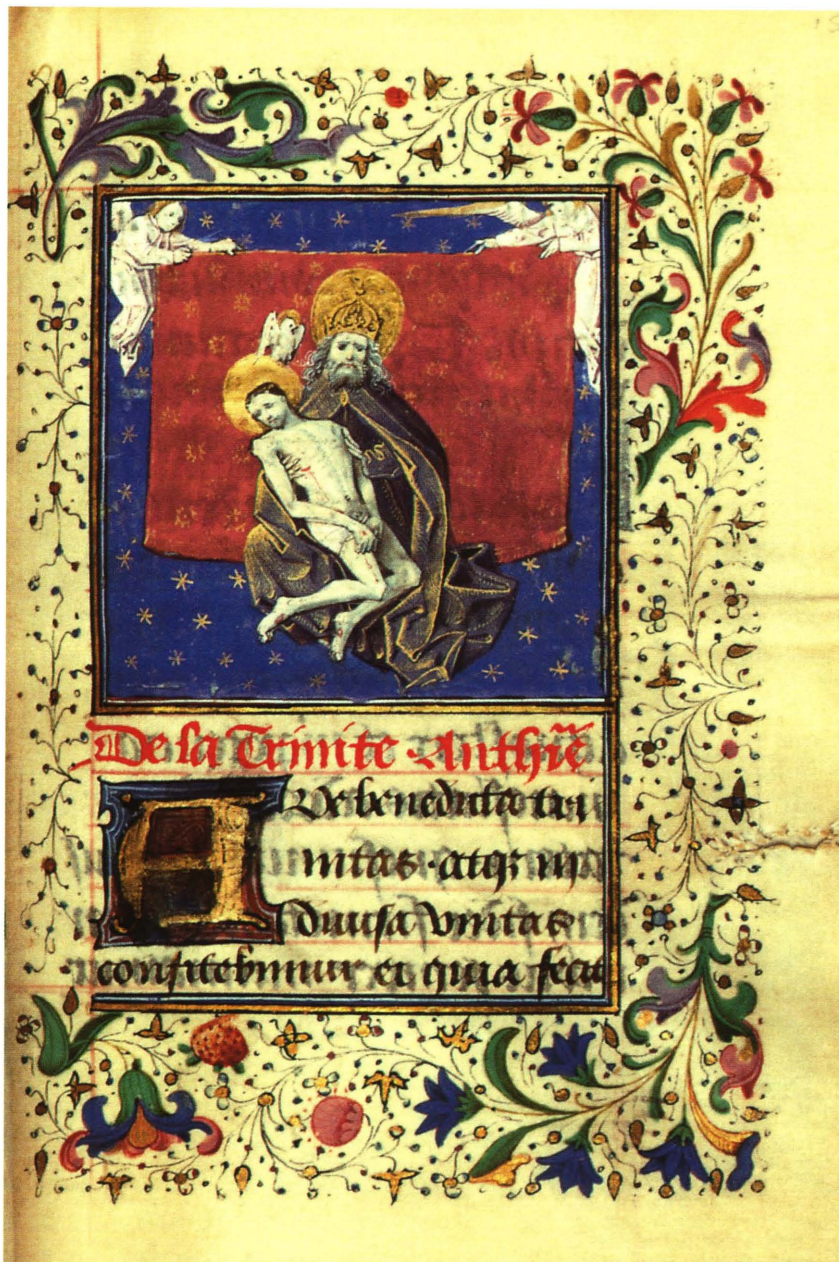 De la Trinite Anthiē
Ave benedicta tri
nitas · atqz in
diuisa vnitas
confitebimur ei quia fecit